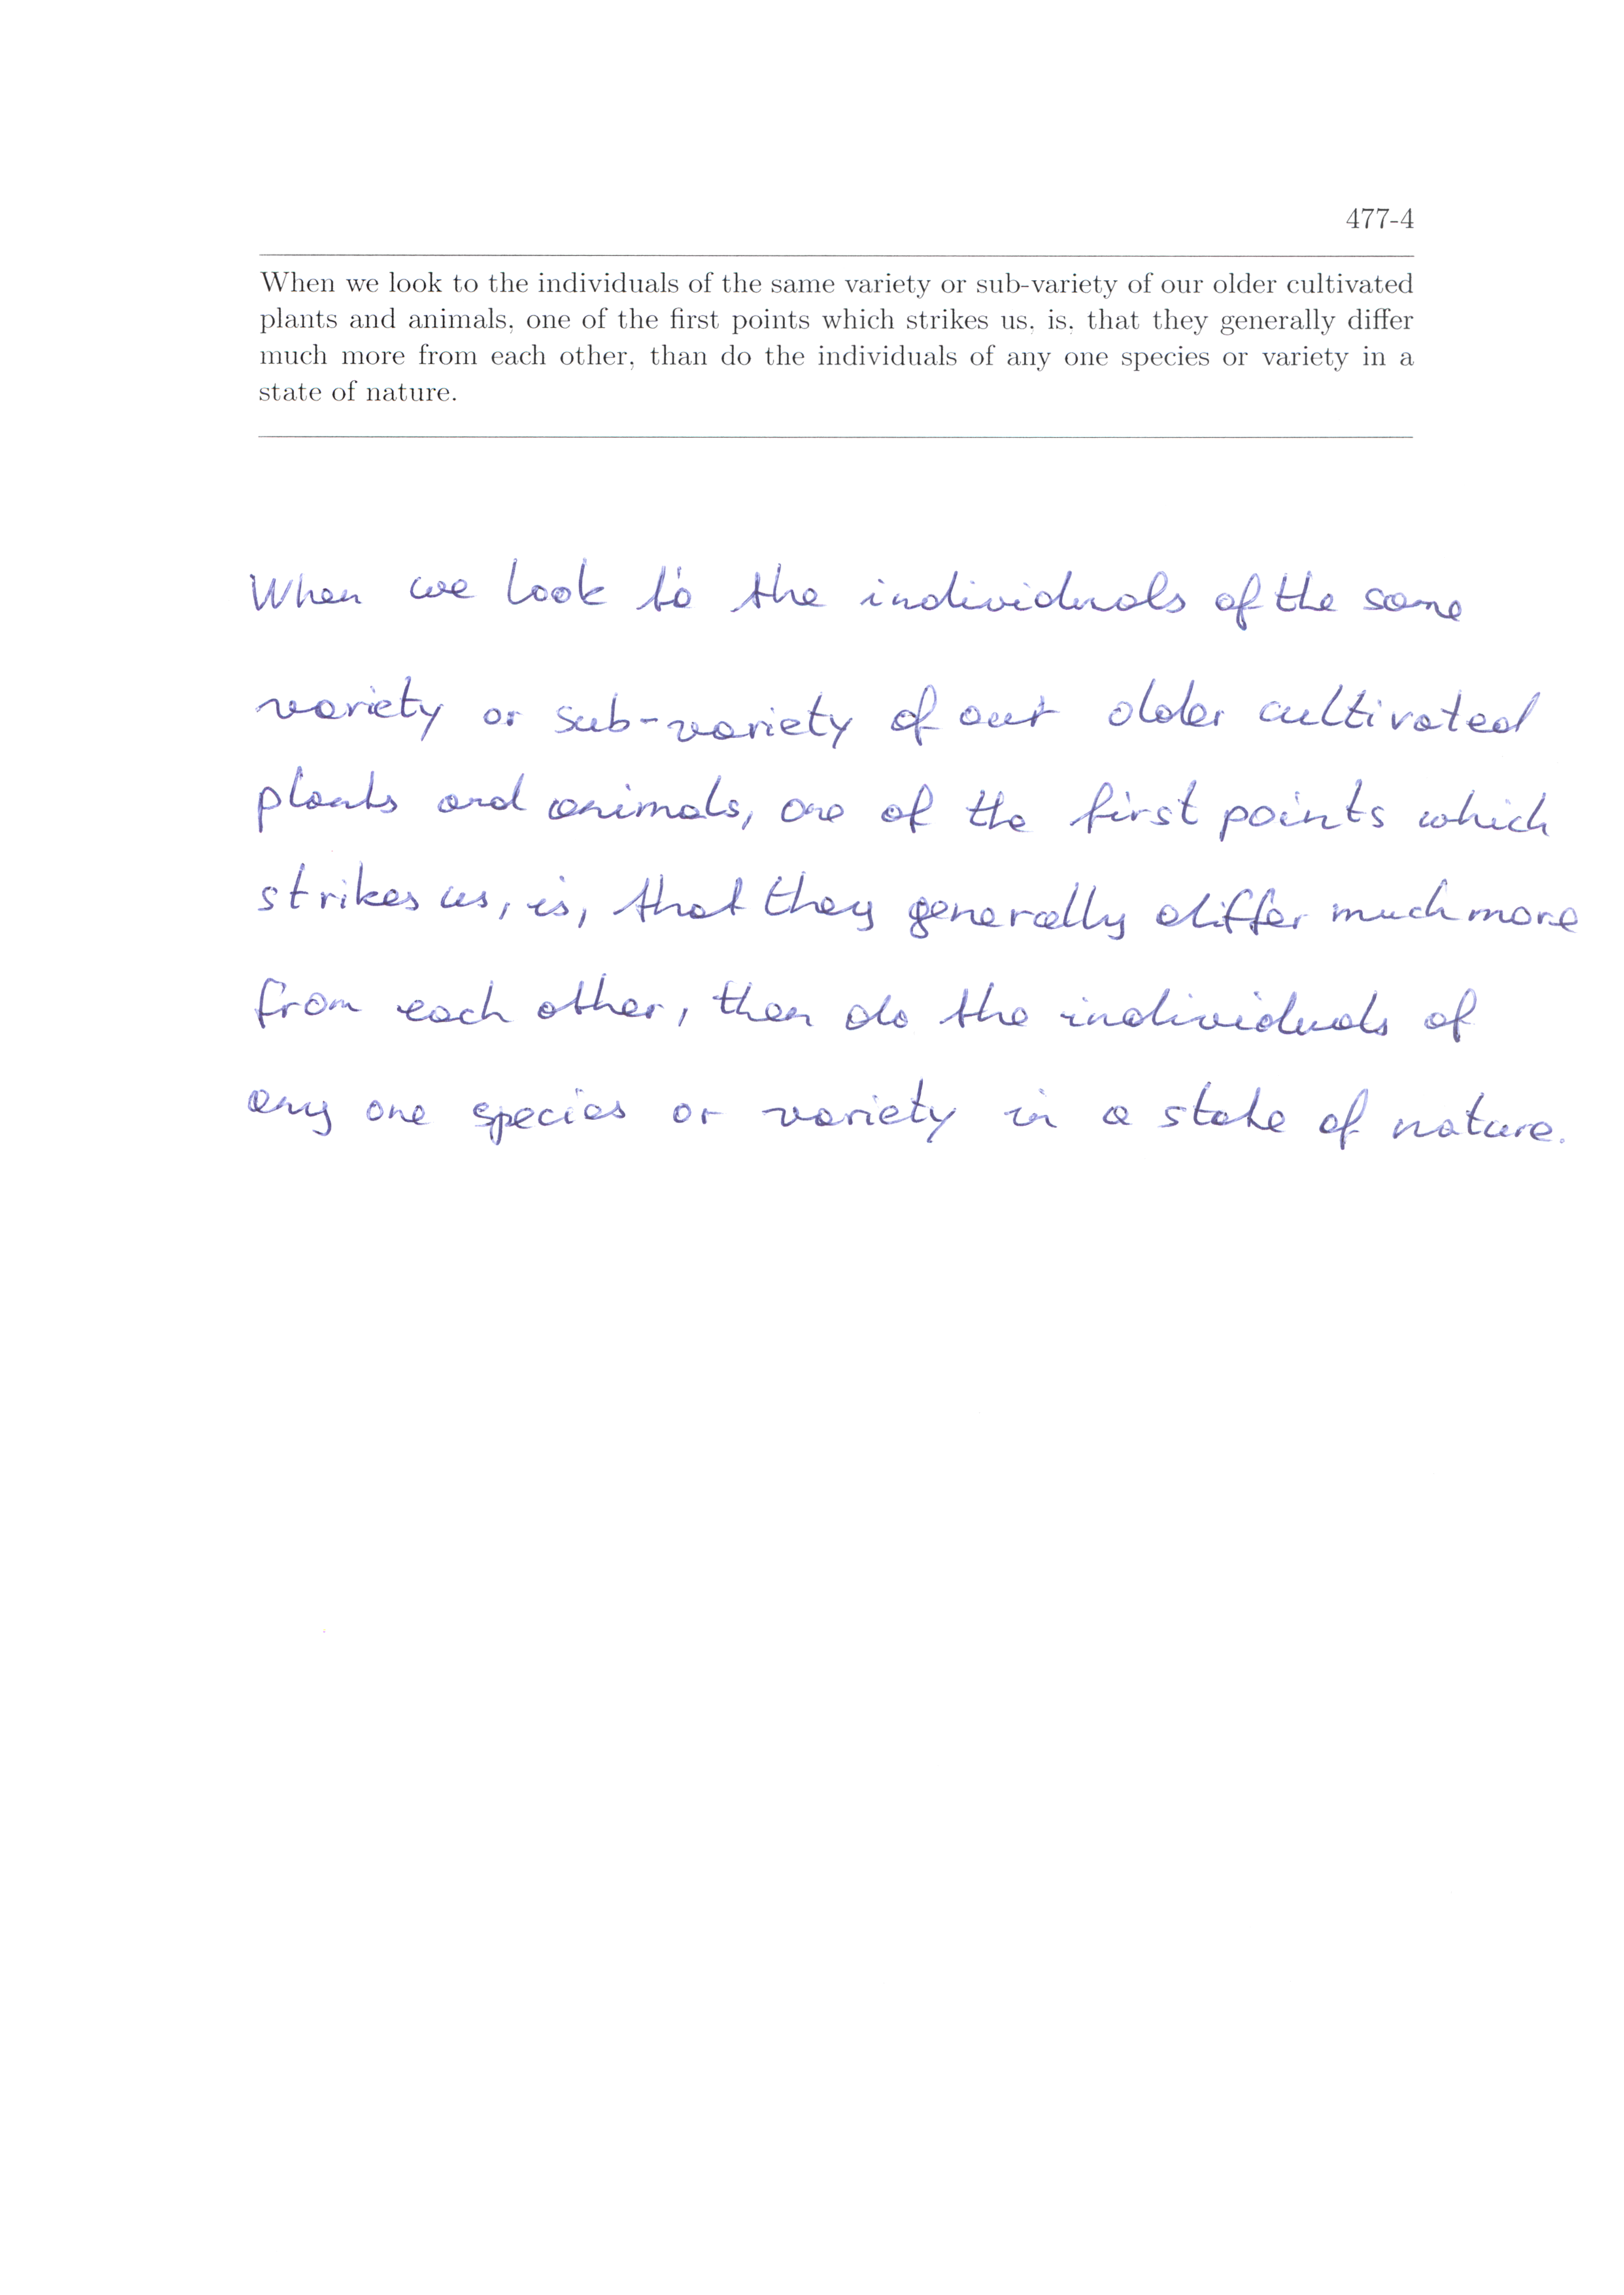 477-4
When we look to the individuals of the same variety or sub-variety of our older cultivated
plants and animals, one of the first points which strikes us, is, that they generally differ
much more from each other, than do the individuals of any one species or variety in a
state of nature.
When we look to the individuals of the same
variety or sub-variety of our older cultivated
plants and animals, one of the first points which
strikes us, is, that they generally differ much more
from each other, then do the individuals of
any one species or variety in a state of nature.